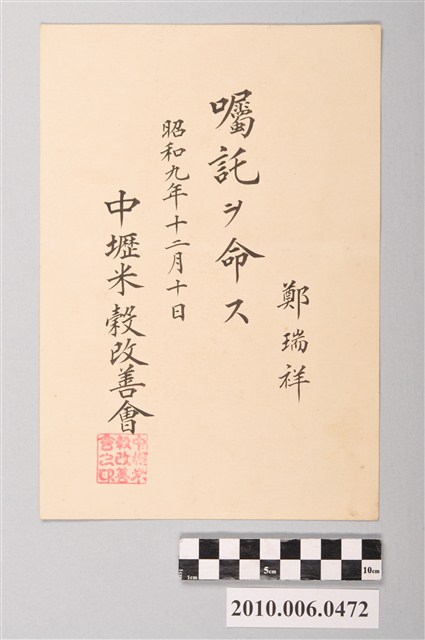 鄭瑞祥
囑託ヲ命ス
昭和九年十二月十日
中壢米穀改善會
中壢米
穀改善
會之印
1cm
5cm
10cm
2010.006.0472